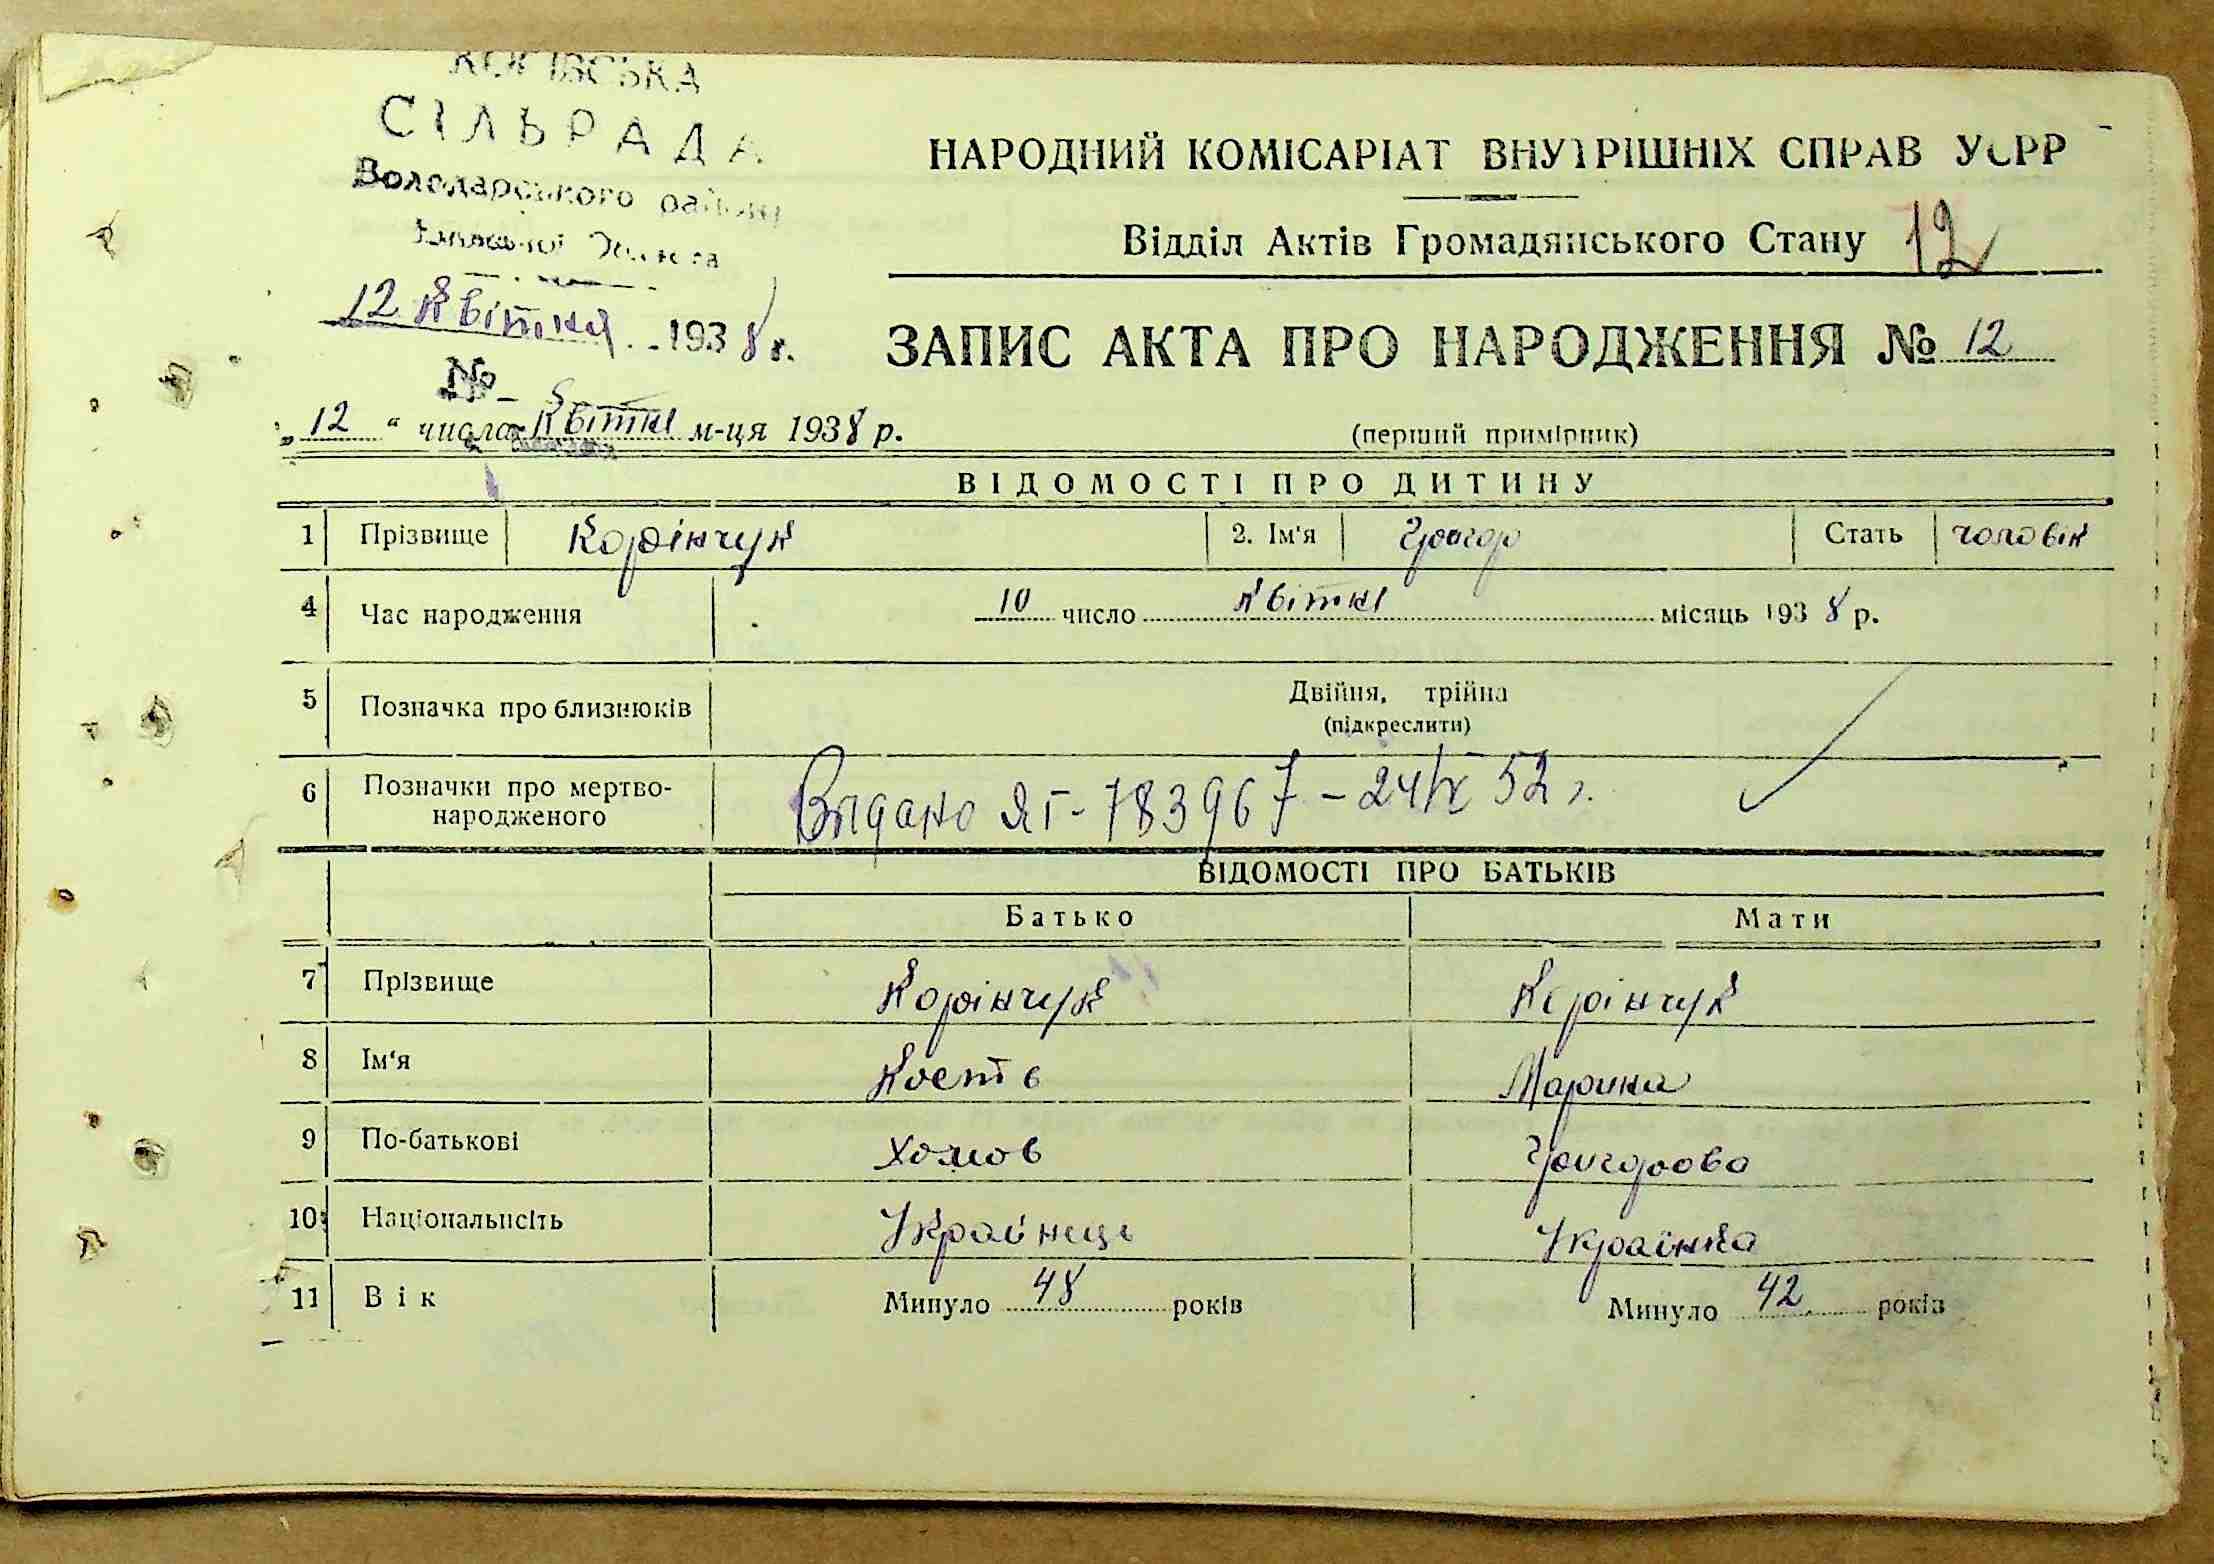 СІЛЬРАДА
Володарського району
12 Квітня 1938 г.
№
НАРОДНИЙ КОМІСАРІАТ ВНУТРІШНІХ СПРАВ УСРР
Відділ Актів Громадянського Стану 12
ЗАПИС АКТА ПРО НАРОДЖЕННЯ № 12
„12“ числа Квітня м-ця 1938 р.
(перший примірник)
ВІДОМОСТІ ПРО ДИТИНУ
1 Прізвище Корінчук 2. Ім'я Григор Стать чоловік
4 Час народження 10 число Квітня місяць 1938 р.
5 Позначка про близнюків Двійня, трійна
(підкреслити)
6 Позначки про мертво-
народженого
Видано ЯГ-783967 - 24/IX 52 г.
ВІДОМОСТІ ПРО БАТЬКІВ
Батько Мати
7 Прізвище Корінчук Корінчук
8 Ім'я Кость Марина
9 По-батькові Хомов Григорова
10 Національність Українець Українка
11 Вік Минуло 48 років Минуло 42 років